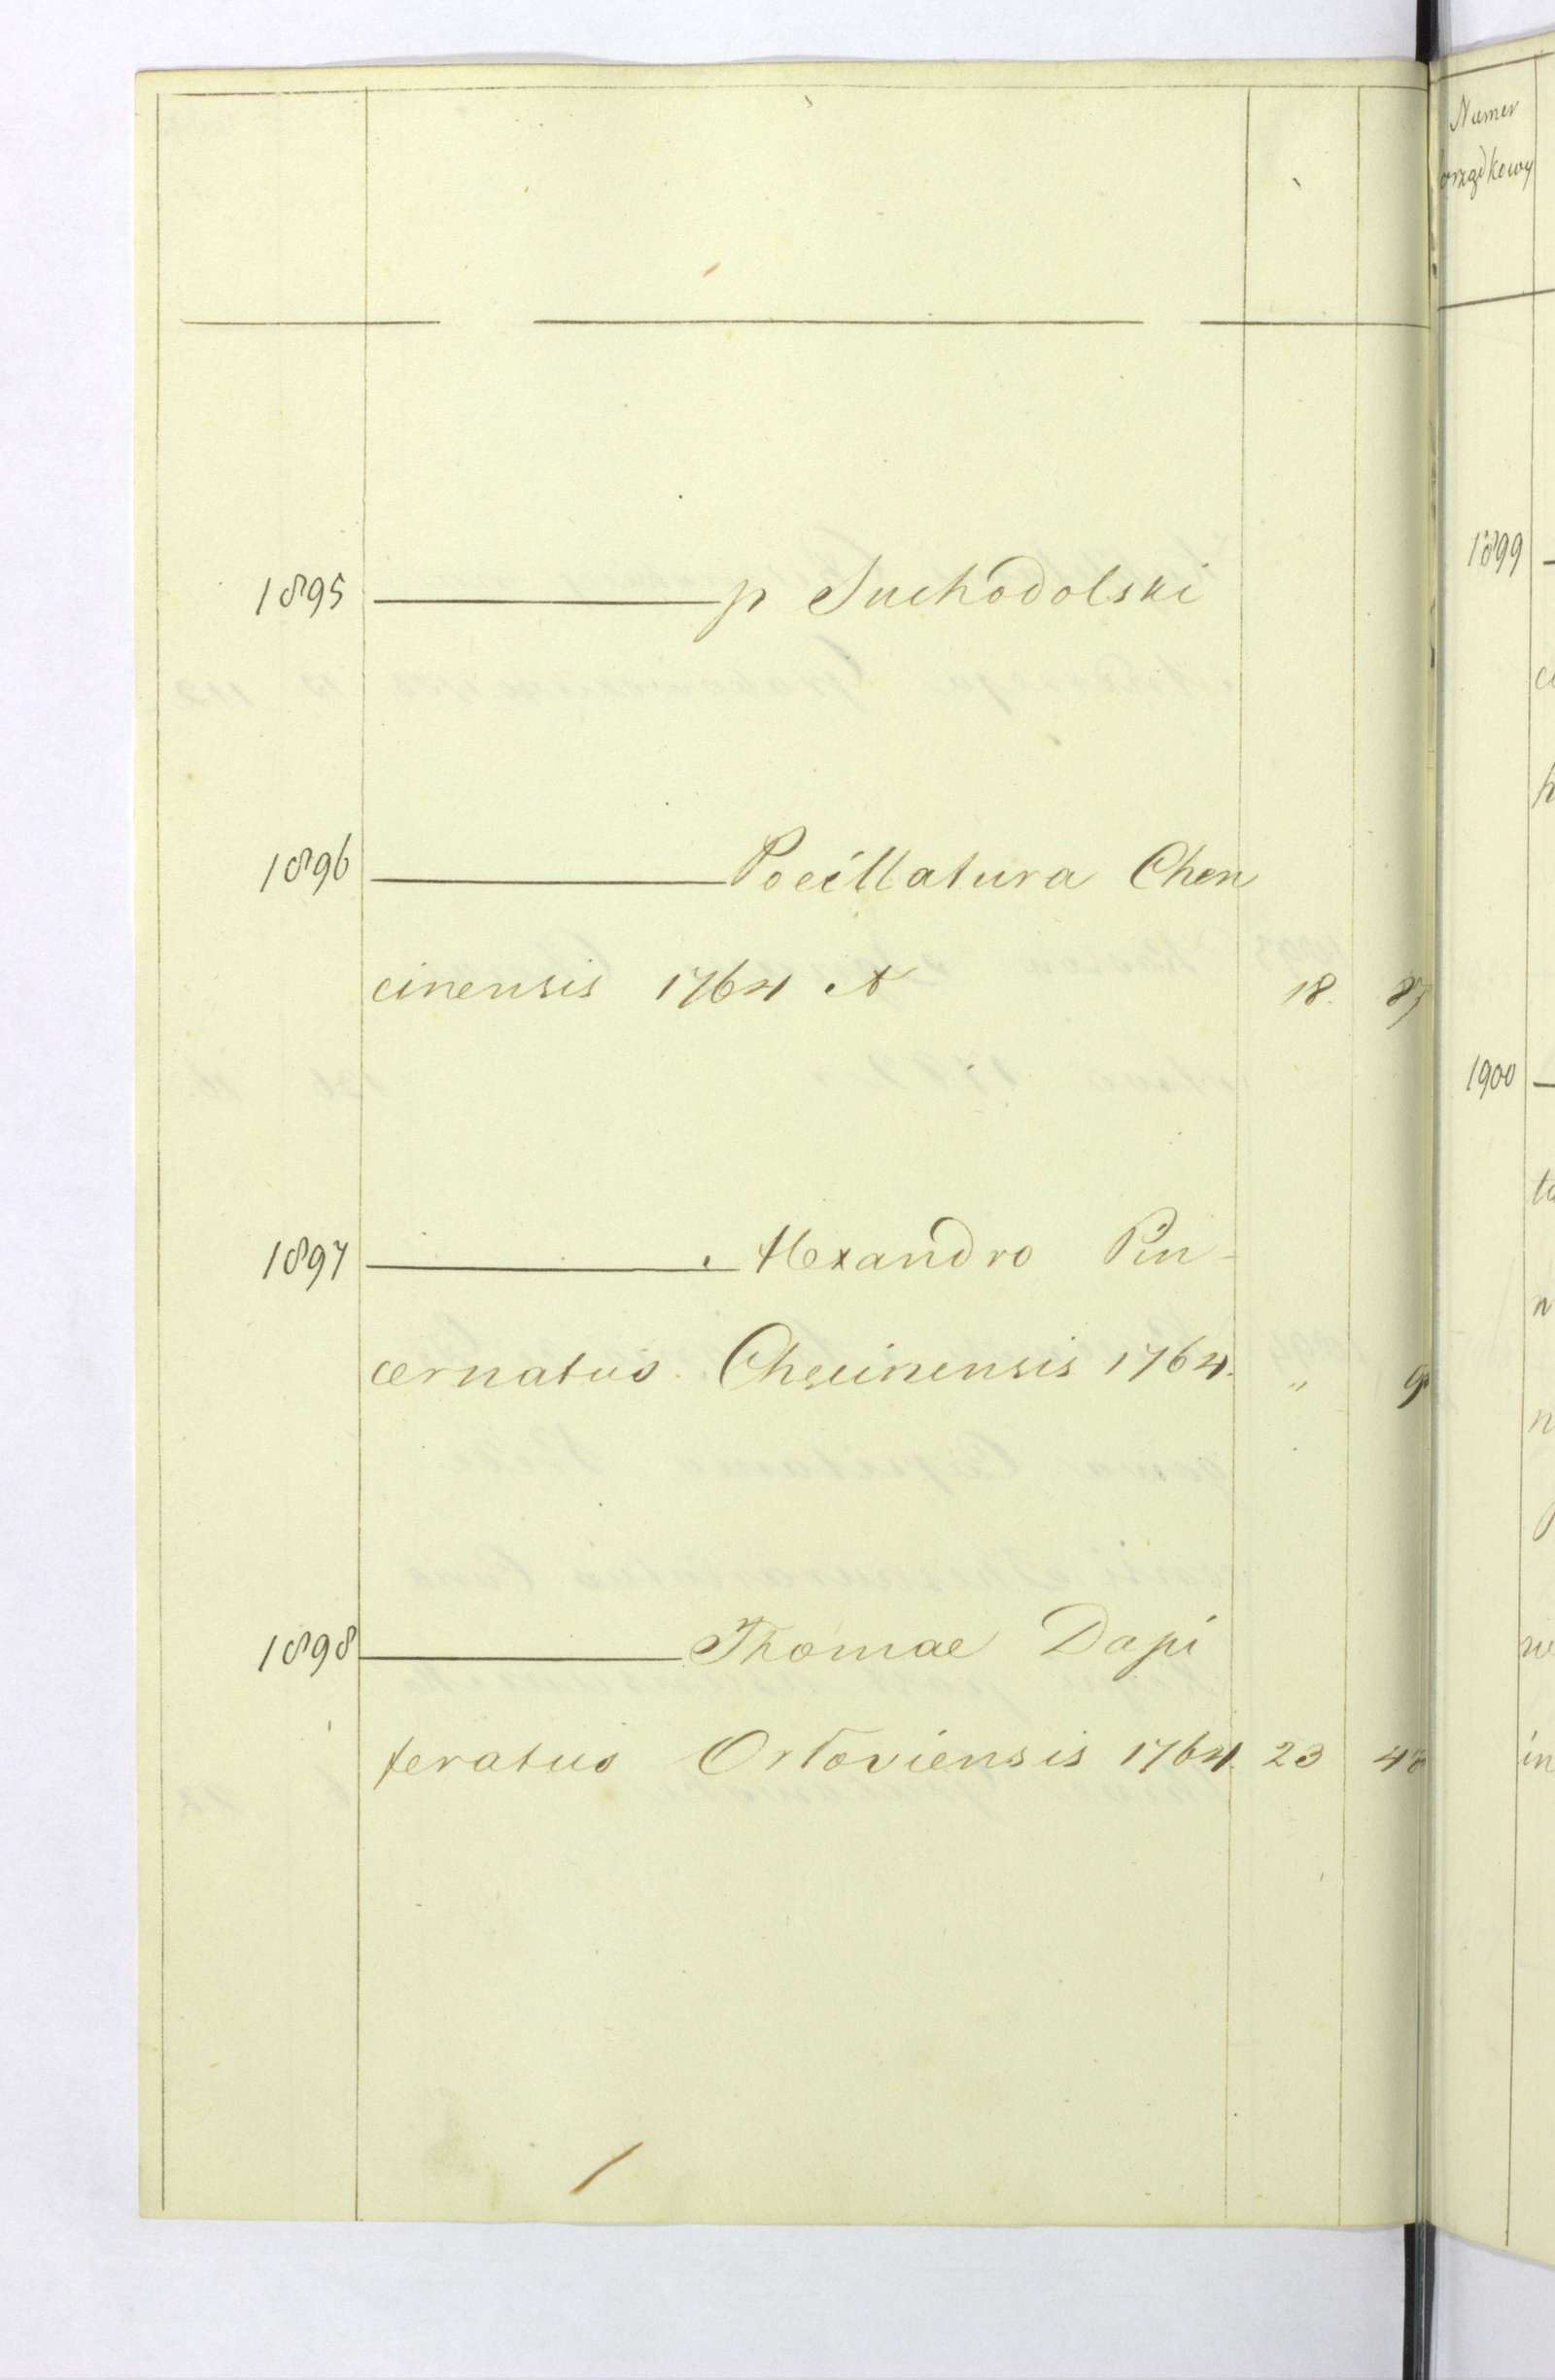 1895 p Suchodolski
1896 Pocillatura Chen
cinensis 1764 A 18. 87
1897 Alexandro Pin-
cernatus Checinensis 1764. „
1898 Thomae Dapi
feratus Orloviensis 1764. 23 48
Numer
porządkowy
1899
1900